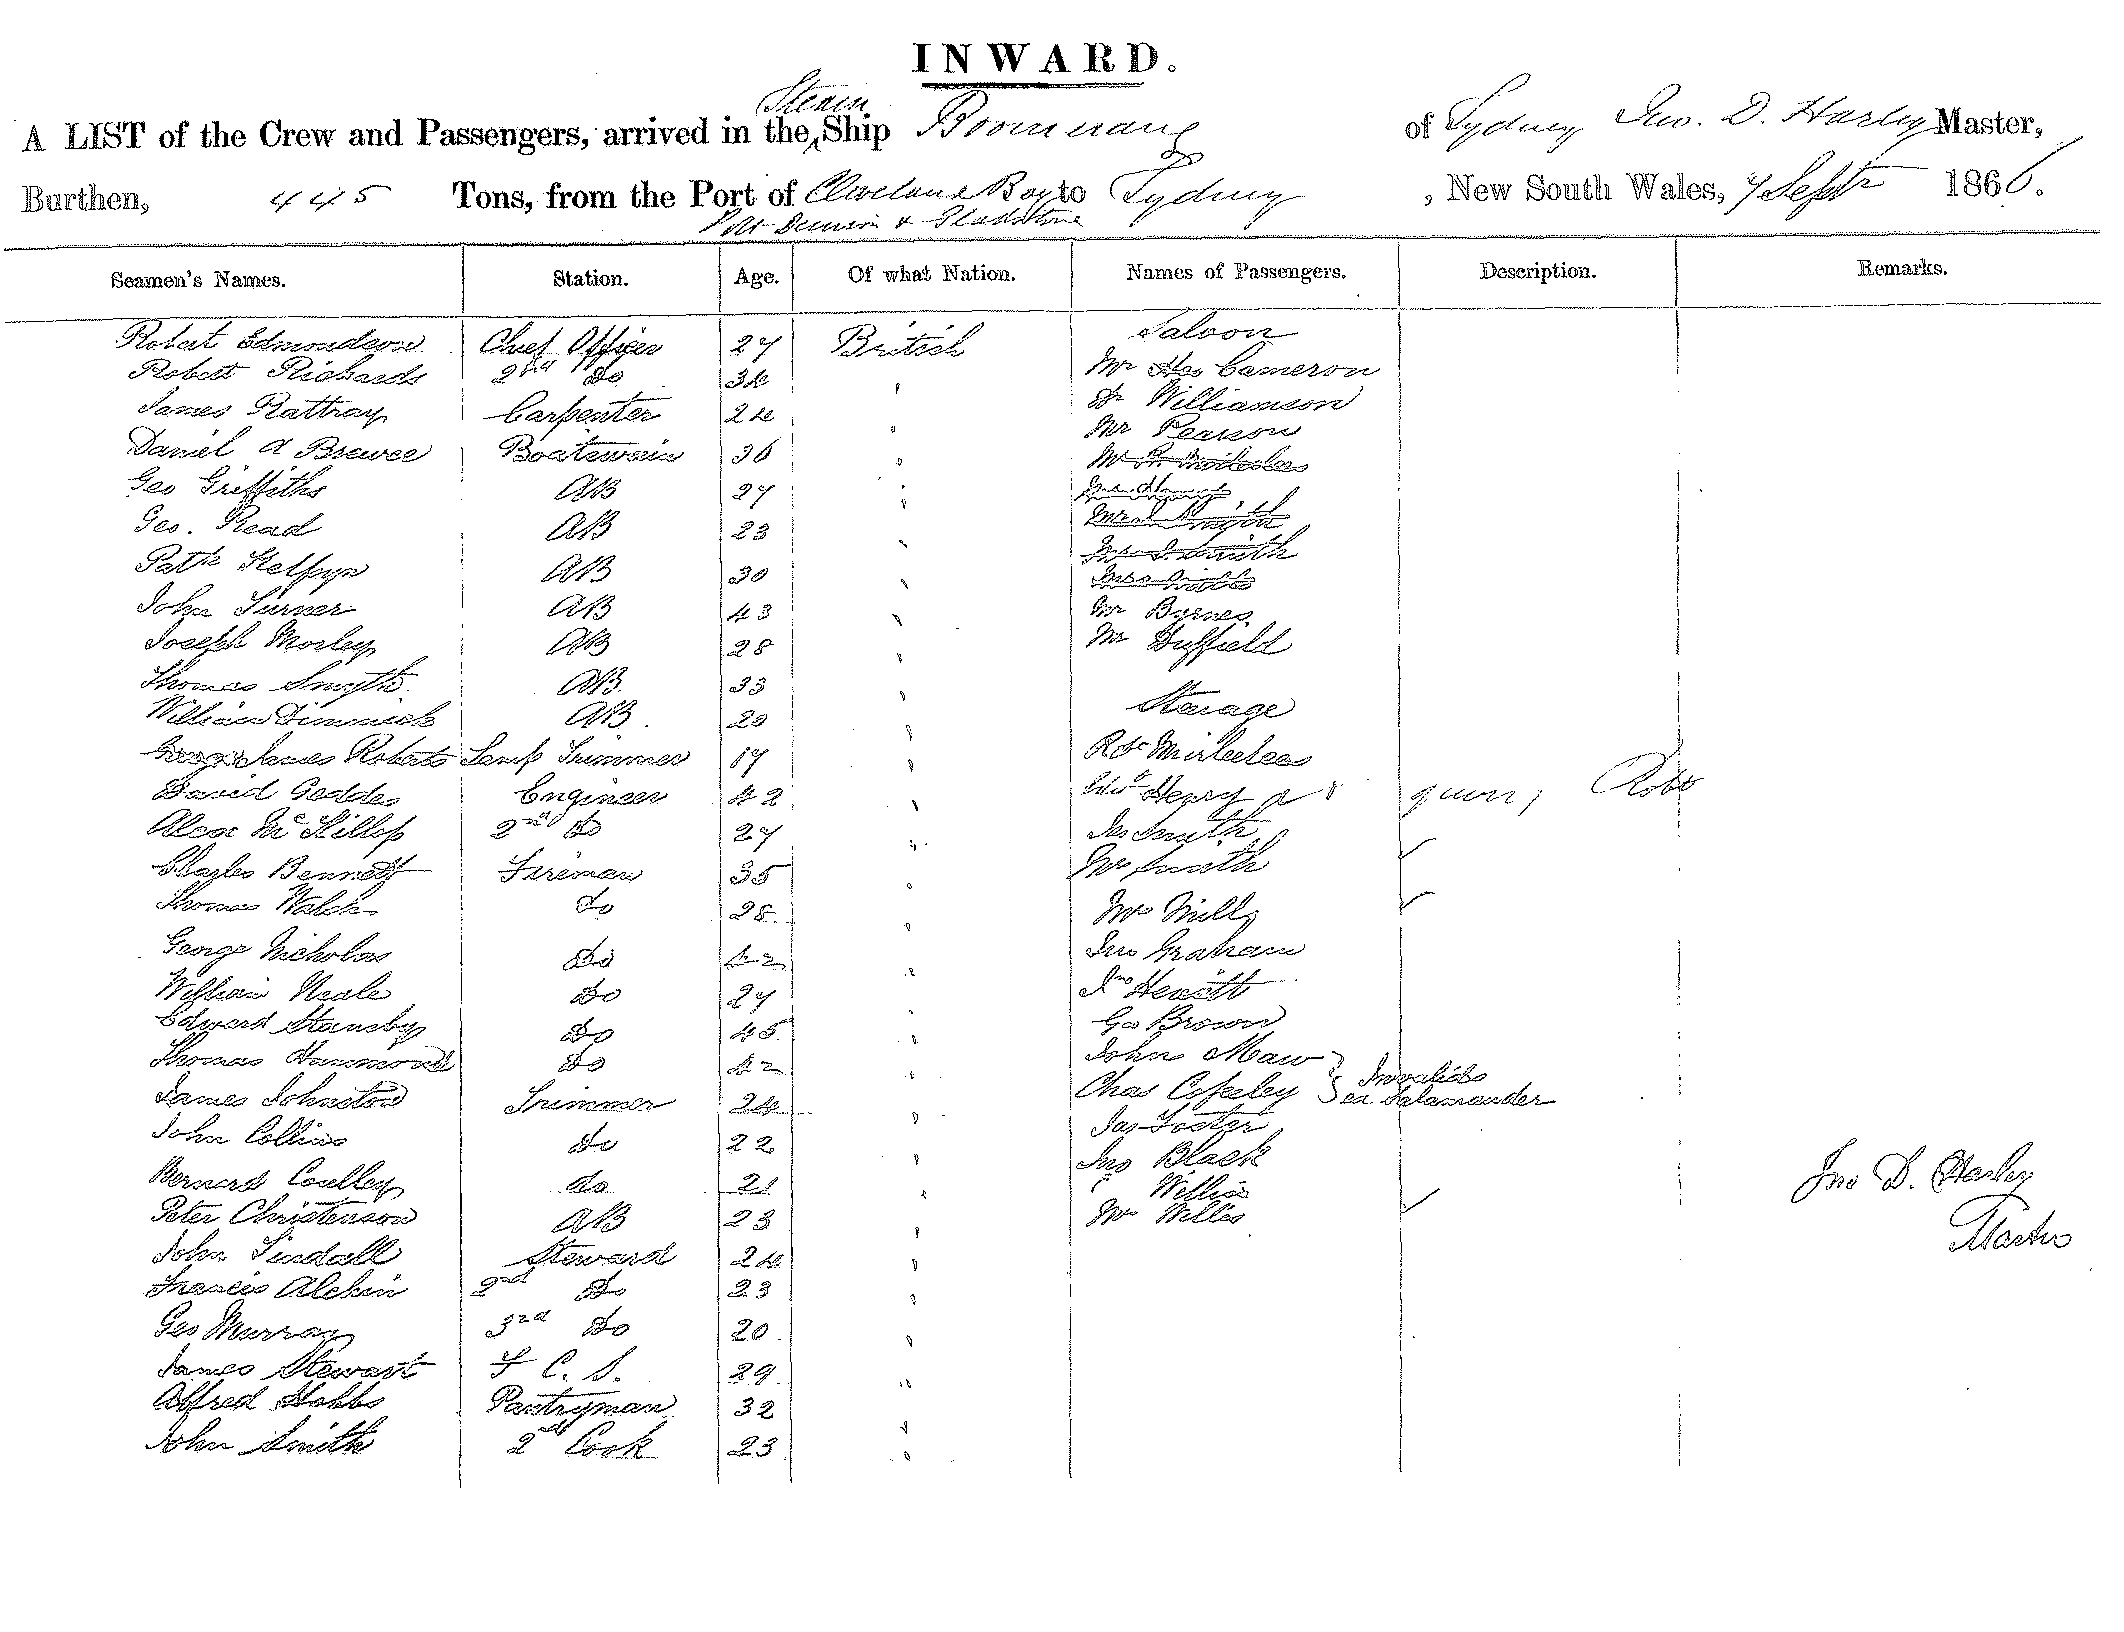 INWARD.
A LIST of the Crew and Passengers, arrived in the Steam Ship Boomerang of Sydney Jno. D. Harley Master,
Burthen, 445 Tons, from the Port of Cleveland Bay to Sydney, New South Wales, 7 Septr 1866.
Port Denison & Gladstone
Seamen's Names. Station. Age. Of what Nation. Names of Passengers. Description. Remarks.
Robert Edmondson Chief Officer 27 British Saloon
Robert Richards 2nd Do 34 " Mr Cameron
James Rattray Carpenter 24 " Dr Williamson
Daniel A Brewer Boatswain 36 " Mr Pearson
Geo Griffiths AB 27 "
Geo. Read AB 23 "
Patk AB 30 " Mr J. Smith
John Turner AB 43 " Mr Byrnes
Joseph Morley AB 28 " Mr Duffield
Thomas Smyth AB 33 "
William Dimmick AB 20 " Stearage
James Roberts Lamp Trimmer 17 " Robt Mirleelees
David Geddes Engineer 42 " Henry Robt
Alex McKillop 2nd Do 27 " Jas Smyth
Charles Bennett Fireman 35 " Mrs Smith
Thomas Walsh Do 28 " Mrs Mills
George Nicholas Do 42 " Jno Graham
William Neale Do 27 " Jno Hewitt
Edward Stansby Do 45 " Geo Brown
Thomas Hammond Do 42 " John Maw
James Johnston Trimmer 24 " Chas Copeley Invalids ex Salamander
John Collins Do 22 " Jas Foster
Bernard Coulley do 21 " Jno Black
Willis
Peter Christenson AB 23 " Mrs Willis
John Tindall Steward 24 "
Francis Alchin 2nd Do 23 "
Geo Murray 3rd Do 20 "
James Stewart F C. S. 29 "
Alfred Hobbs Pantryman 32 "
John Smith 2nd Cook 23 "
Jno D. Harley
Master